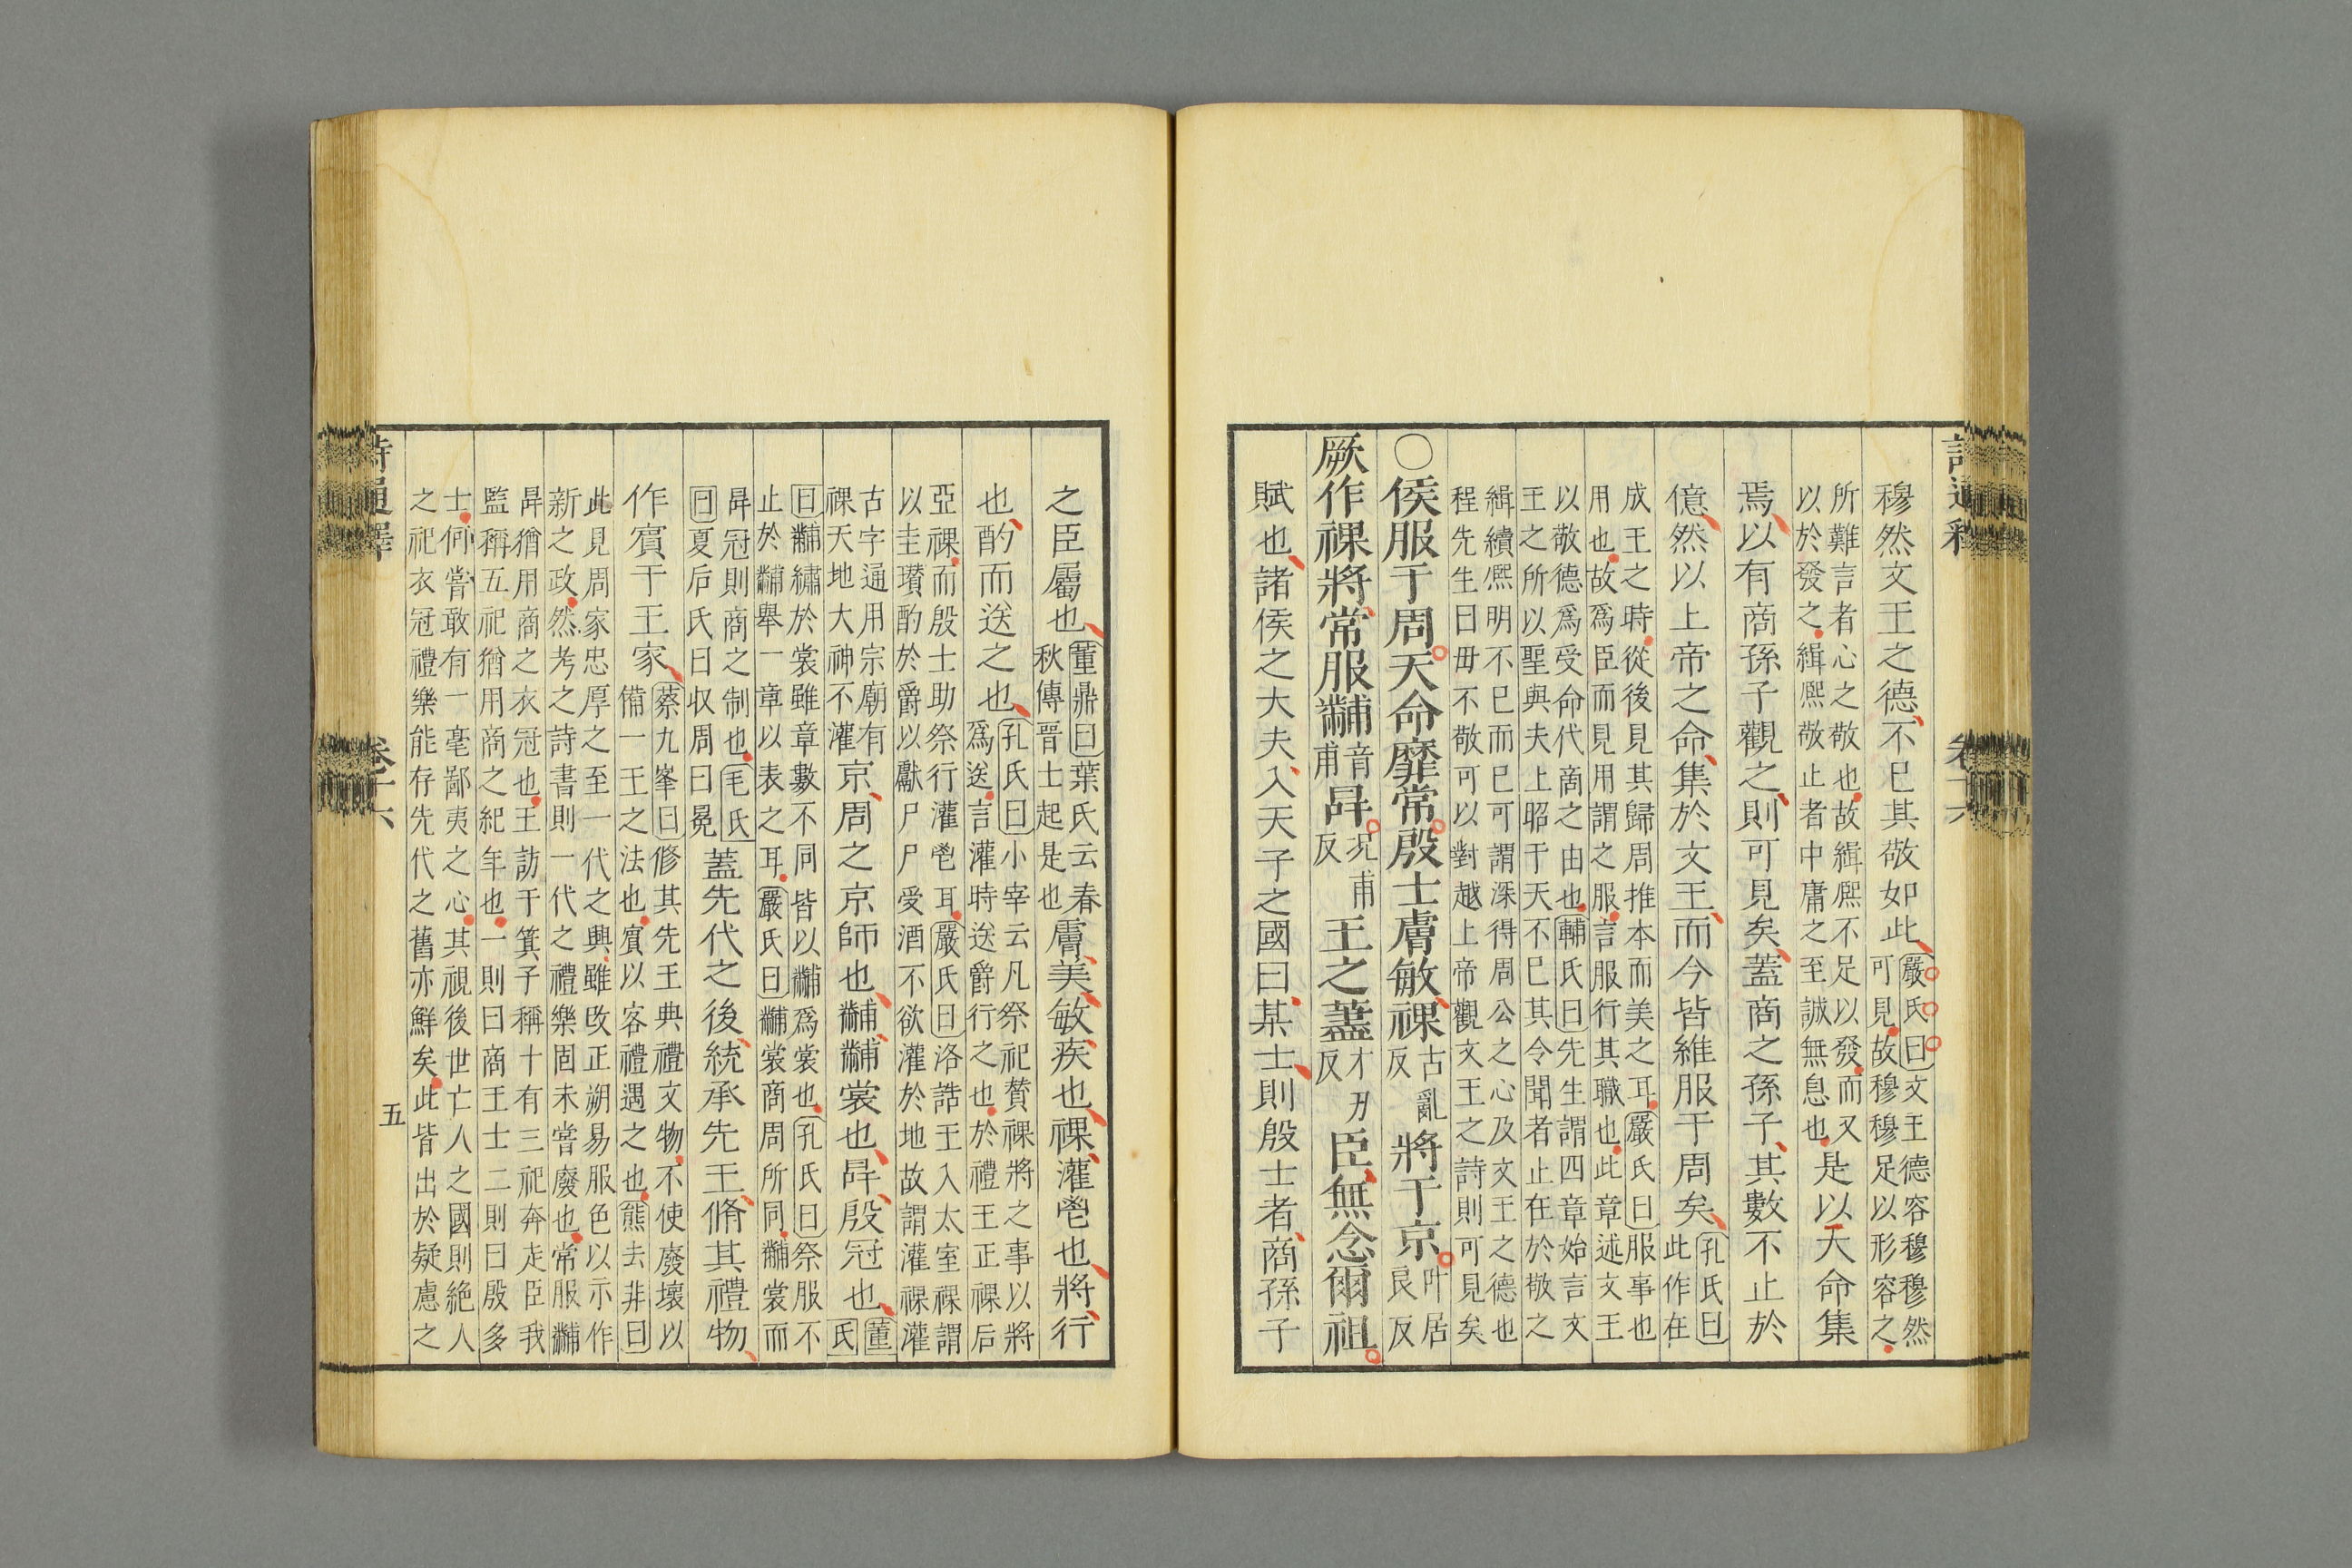 詩通釋 卷十六
穆然文王之德不已其敬如此嚴氏曰文王德容穆穆然
可見故穆穆足以形容之
所難言者心之敬也故緝熈不足以發而又
以於發之緝熈敬止者中庸之至誠無息也是以天命集
焉以有商孫子觀之則可見矣蓋商之孫子其數不止於
億然以上帝之命集於文王而今皆維服于周矣孔氏曰
此作在
成王之時從後見其歸周推本而美之耳嚴氏曰服事也
用也故爲臣而見用謂之服言服行其職也此章述文王
以敬德爲受命代商之由也輔氏曰先生謂四章始言文
王之所以聖與夫上昭于天不已其令聞者止在於敬之
緝續熈明不已而已可謂深得周公之心及文王之德也
程先生曰毋不敬可以對越上帝觀文王之詩則可見矣
○侯服于周天命靡常殷士膚敏祼古亂反將于京叶居良反
厥作祼將常服黼音甫冔况甫反王之藎才刃反臣無念爾祖
賦也諸侯之大夫入天子之國曰某士則殷士者商孫子
之臣屬也董鼎曰葉氏云春
秋傳晉士起是也膚美敏疾也祼灌鬯也將行
也酌而送之也孔氏曰小宰云凡祭祀賛祼將之事以將
爲送言灌時送爵行之也於禮王正祼后
亞祼而殷士助祭行灌鬯耳嚴氏曰洛誥王入太室祼謂
以圭瓚酌於爵以獻尸尸受酒不飲灌於地故謂灌祼灌
古字通用宗廟有
祼天地大神不灌京周之京師也黼黼裳也冔殷冠也董
氏
曰黼繡於裳雖章數不同皆以黼爲裳也孔氏曰祭服不
止於黼舉一章以表之耳嚴氏曰黼裳商周所同黼裳而
冔冠則商之制也毛氏
曰夏后氏曰収周曰冕蓋先代之後統承先王脩其禮物
作賓于王家蔡九峯曰修其先王典禮文物不使廢壞以
備一王之法也賓以客禮遇之也熊去非曰
此見周家忠厚之至一代之興雖改正朔易服色以示作
新之政然考之詩書則一代之禮樂固未嘗廢也常服黼
冔猶用商之衣冠也王訪于箕子稱十有三祀奔走臣我
監稱五祀猶用商之紀年也一則曰商王士二則曰殷多
士何嘗敢有一毫鄙夷之心其視後世亡人之國則絶人
之祀衣冠禮樂能存先代之舊亦鮮矣此皆出於疑慮之
詩通釋 卷十六 五